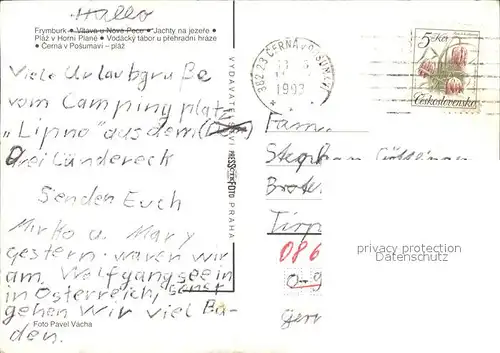 Hallo
Frymburk • Vltava u Nové Pece • Jachty na jezeře •
Pláž v Horní Plané • Vodácký tábor u přehradní hráze
• Černá v Pošumaví – pláž
Viele Urlaubgruße
vom Camping platz
„Lipno“ aus dem
drei Ländereck
Senden Euch
Mirko u. Mary
gestern waren wir
am Wolfgangsee in
in Österreich, sonst
gehen wir viel Ba-
den.
Foto Pavel Vácha
VYDAVATELSTVÍ PRESSFOTO PRAHA
382 23 ČERNÁ V POŠUMAVÍ
1993
5 Kčs
Československo
Fam
Stephan
Brote
Tirp
086
0-9
Ger
privacy protection
Datenschutz